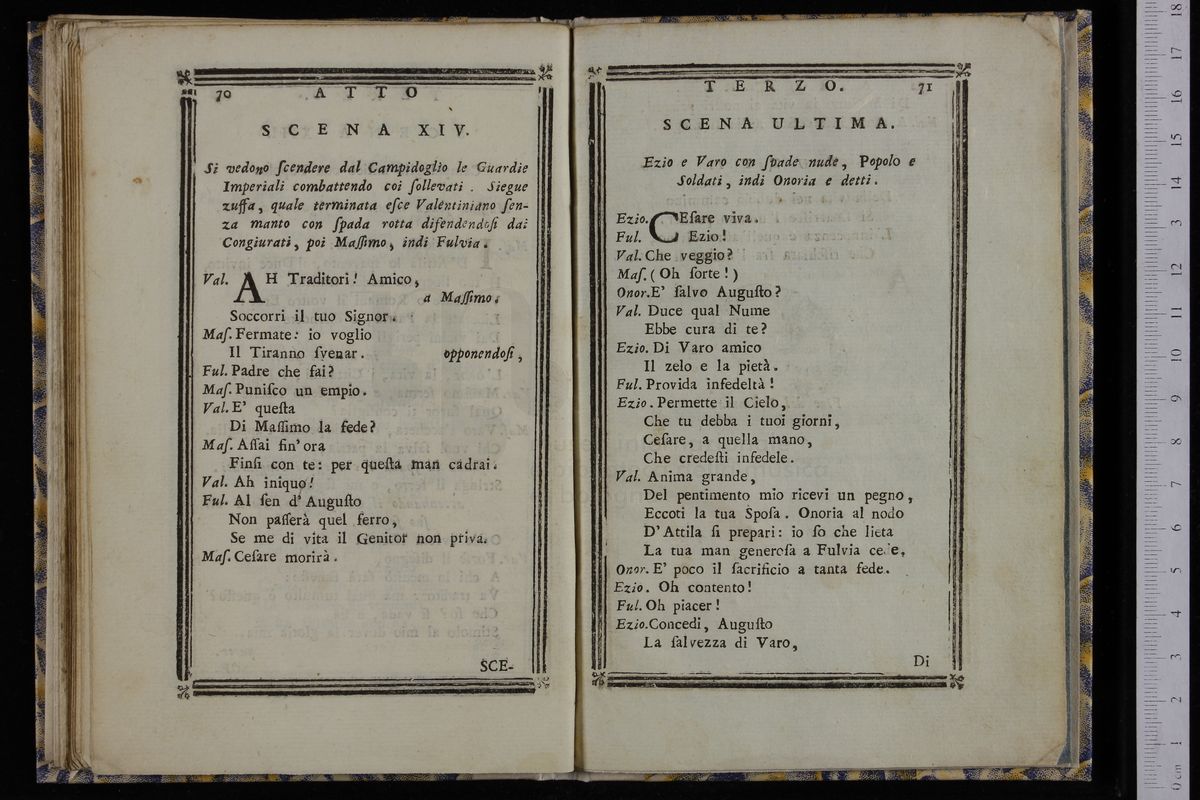 70 ATTO
SCENA XIV.
Si vedono ſcendere dal Campidoglio le Guardie
Imperiali combattendo coi ſollevati . Siegue
zuffa, quale terminata eſce Valentiniano ſen-
za manto con ſpada rotta difendendoſi dai
Congiurati, poi Maſſimo, indi Fulvia.
Val. AH Traditori! Amico,
a Maſſimo.
Soccorri il tuo Signor.
Maſ. Fermate: io voglio
Il Tiranno ſvenar. opponendoſi,
Ful. Padre che fai?
Maſ. Puniſco un empio.
Val. E' queſta
Di Maſſimo la fede?
Maſ. Aſſai fin' ora
Finſi con te: per queſta man cadrai.
Val. Ah iniquo!
Ful. Al ſen d' Auguſto
Non paſſerà quel ferro,
Se me di vita il Genitor non priva.
Maſ. Ceſare morirà.
SCE-
TERZO. 71
SCENA ULTIMA.
Ezio e Varo con ſpade nude, Popolo e
Soldati, indi Onoria e detti.
Ezio. CEſare viva.
Ful. Ezio!
Val. Che veggio?
Maſ. (Oh ſorte!)
Onor. E' ſalvo Auguſto?
Val. Duce qual Nume
Ebbe cura di te?
Ezio. Di Varo amico
Il zelo e la pietà.
Ful. Provida infedeltà!
Ezio. Permette il Cielo,
Che tu debba i tuoi giorni,
Ceſare, a quella mano,
Che credeſti infedele.
Val. Anima grande,
Del pentimento mio ricevi un pegno,
Eccoti la tua Spoſa. Onoria al nodo
D' Attila ſi prepari: io ſo che lieta
La tua man generoſa a Fulvia cede.
Onor. E' poco il ſacrificio a tanta fede.
Ezio. Oh contento!
Ful. Oh piacer!
Ezio. Concedi, Auguſto
La ſalvezza di Varo,
Di
18
17
16
15
14
13
12
11
10
9
8
7
6
5
4
3
2
1
0 cm